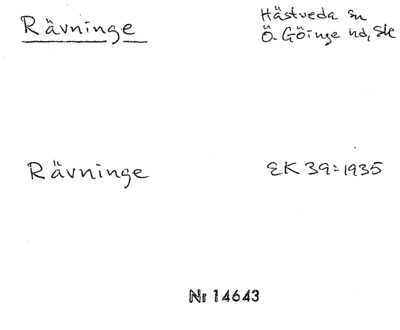 Rävninge
Hästveda sn
Ö. Göinge hd, Sk
Rävninge
EK 39:1935
Nr 14643